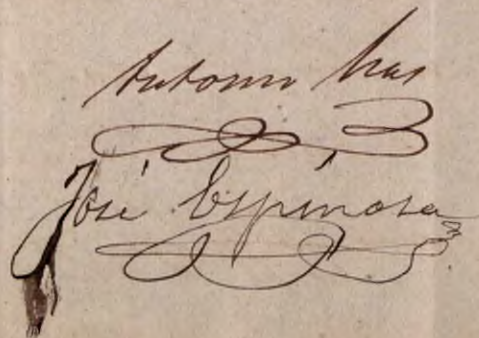 Antonio Mas
José Espinosa